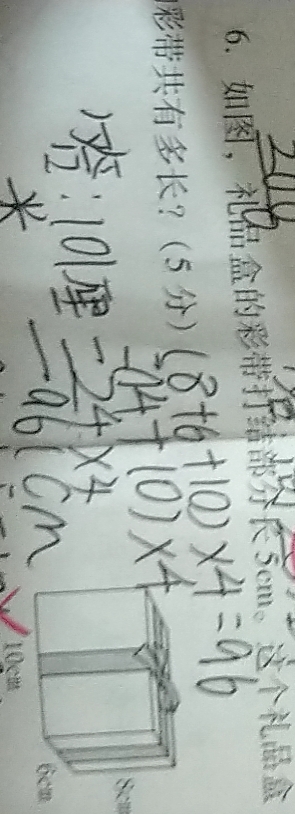 6. 如图，礼品盒的彩带打结部分长5cm。这个礼品盒
彩带共有多长？（5分）
(8+6+10)×4=96
=(14+10)×4
=24×4
=96(cm
答:101厘
米
10cm
6cm
8cm